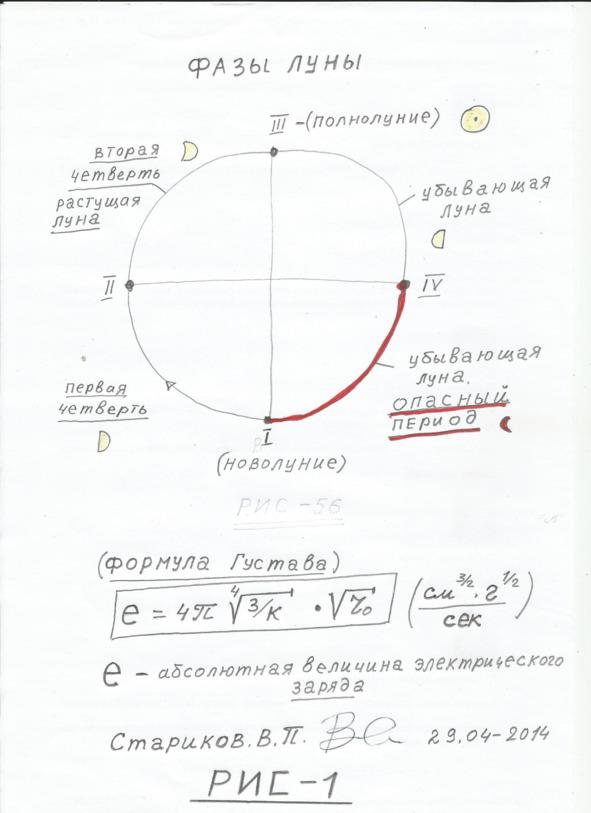 ФАЗЫ ЛУНЫ
III -(ПОЛНОЛУНИЕ)
ВТОРАЯ
ЧЕТВЕРТЬ
РАСТУЩАЯ
ЛУНА
УБЫВАЮЩАЯ
ЛУНА
II
IV
УБЫВАЮЩАЯ
ЛУНА.
ОПАСНЫЙ
ПЕРИОД
ПЕРВАЯ
ЧЕТВЕРТЬ
I
(НОВОЛУНИЕ)
РИС-56
(ФОРМУЛА ГУСТАВА)
e = 4π ∜3/к · √τ₀ (см^3/2 · г^1/2 / сек)
e - абсолютная величина электрического
заряда
Стариков. В.П. 29.04-2014
РИС-1